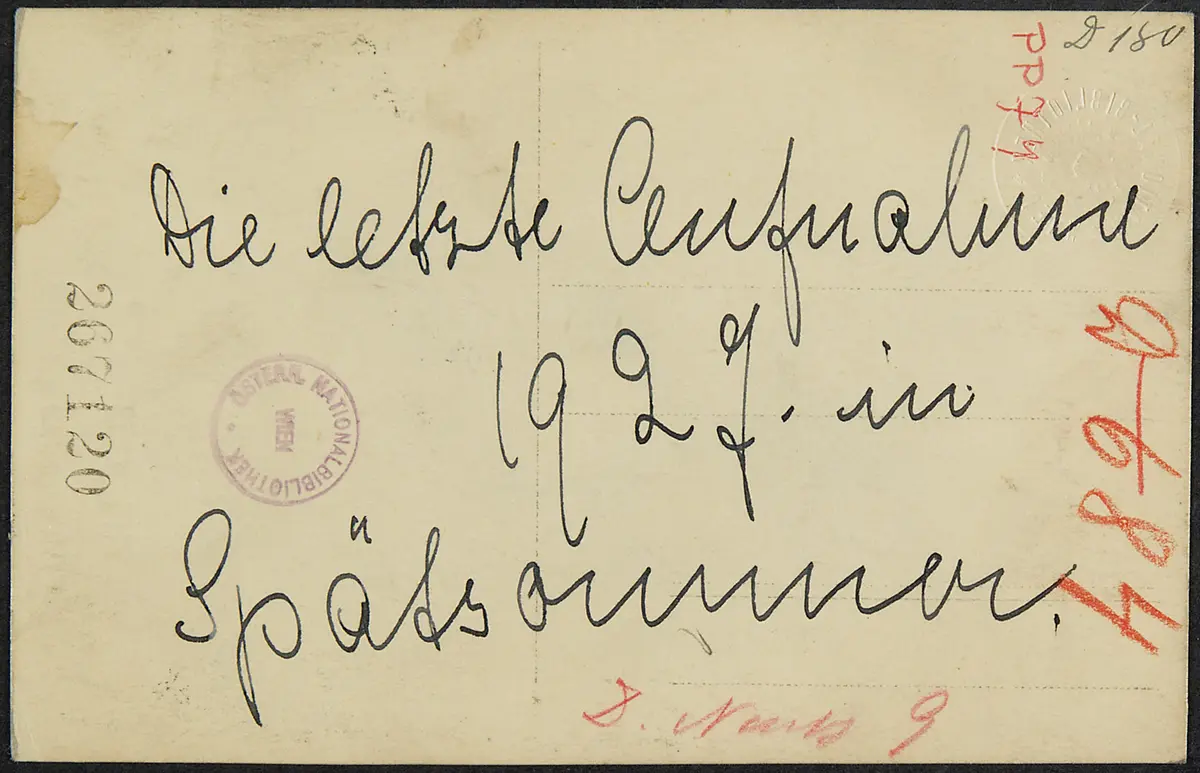 D 180
PP74
Die letzte Aufnahme
1927. in
Spätsommer.
267120
ÖSTERR. NATIONALBIBLIOTHEK
WIEN
9